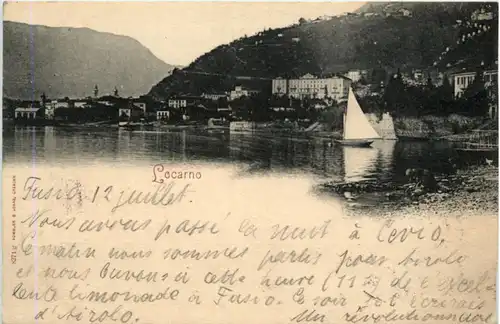 Locarno
Fusio 12 juillet.
Nous avons passé la nuit à Cevio,
Ce matin nous sommes partis pour Airolo
et nous buvons à cette heure (11 h) de l'excel-
lente limonade à Fusio. Ce soir je t'écrirais
d'Airolo. Un révolutionnaire